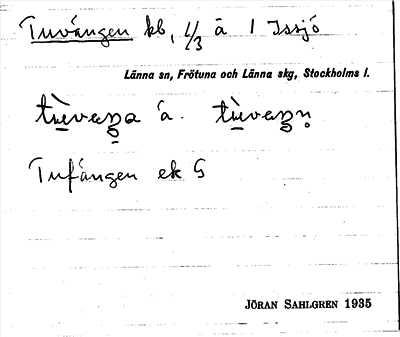 Tuvängen kb, 1/3 ä 1 Issjö
Länna sn, Frötuna och Länna skg, Stockholms l.
Tufängen ek G
JÖRAN SAHLGREN 1935